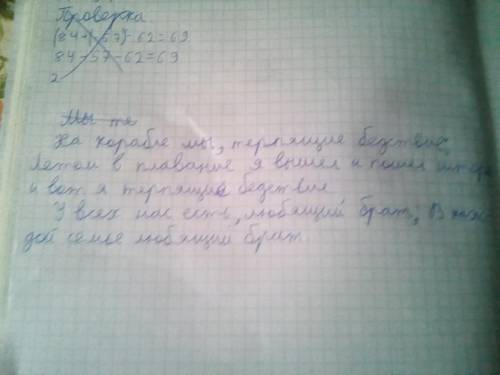 Проверка
(84+(-57)-62=69
84-57-62=69
2
Мы те
На корабле мы, терпящие бедствие,
Летом в плавание я вышел и пошел шторм
и вот я терпящий бедствие
У всех нас есть, любящий брат; В каж-
дой семье любящий брат.